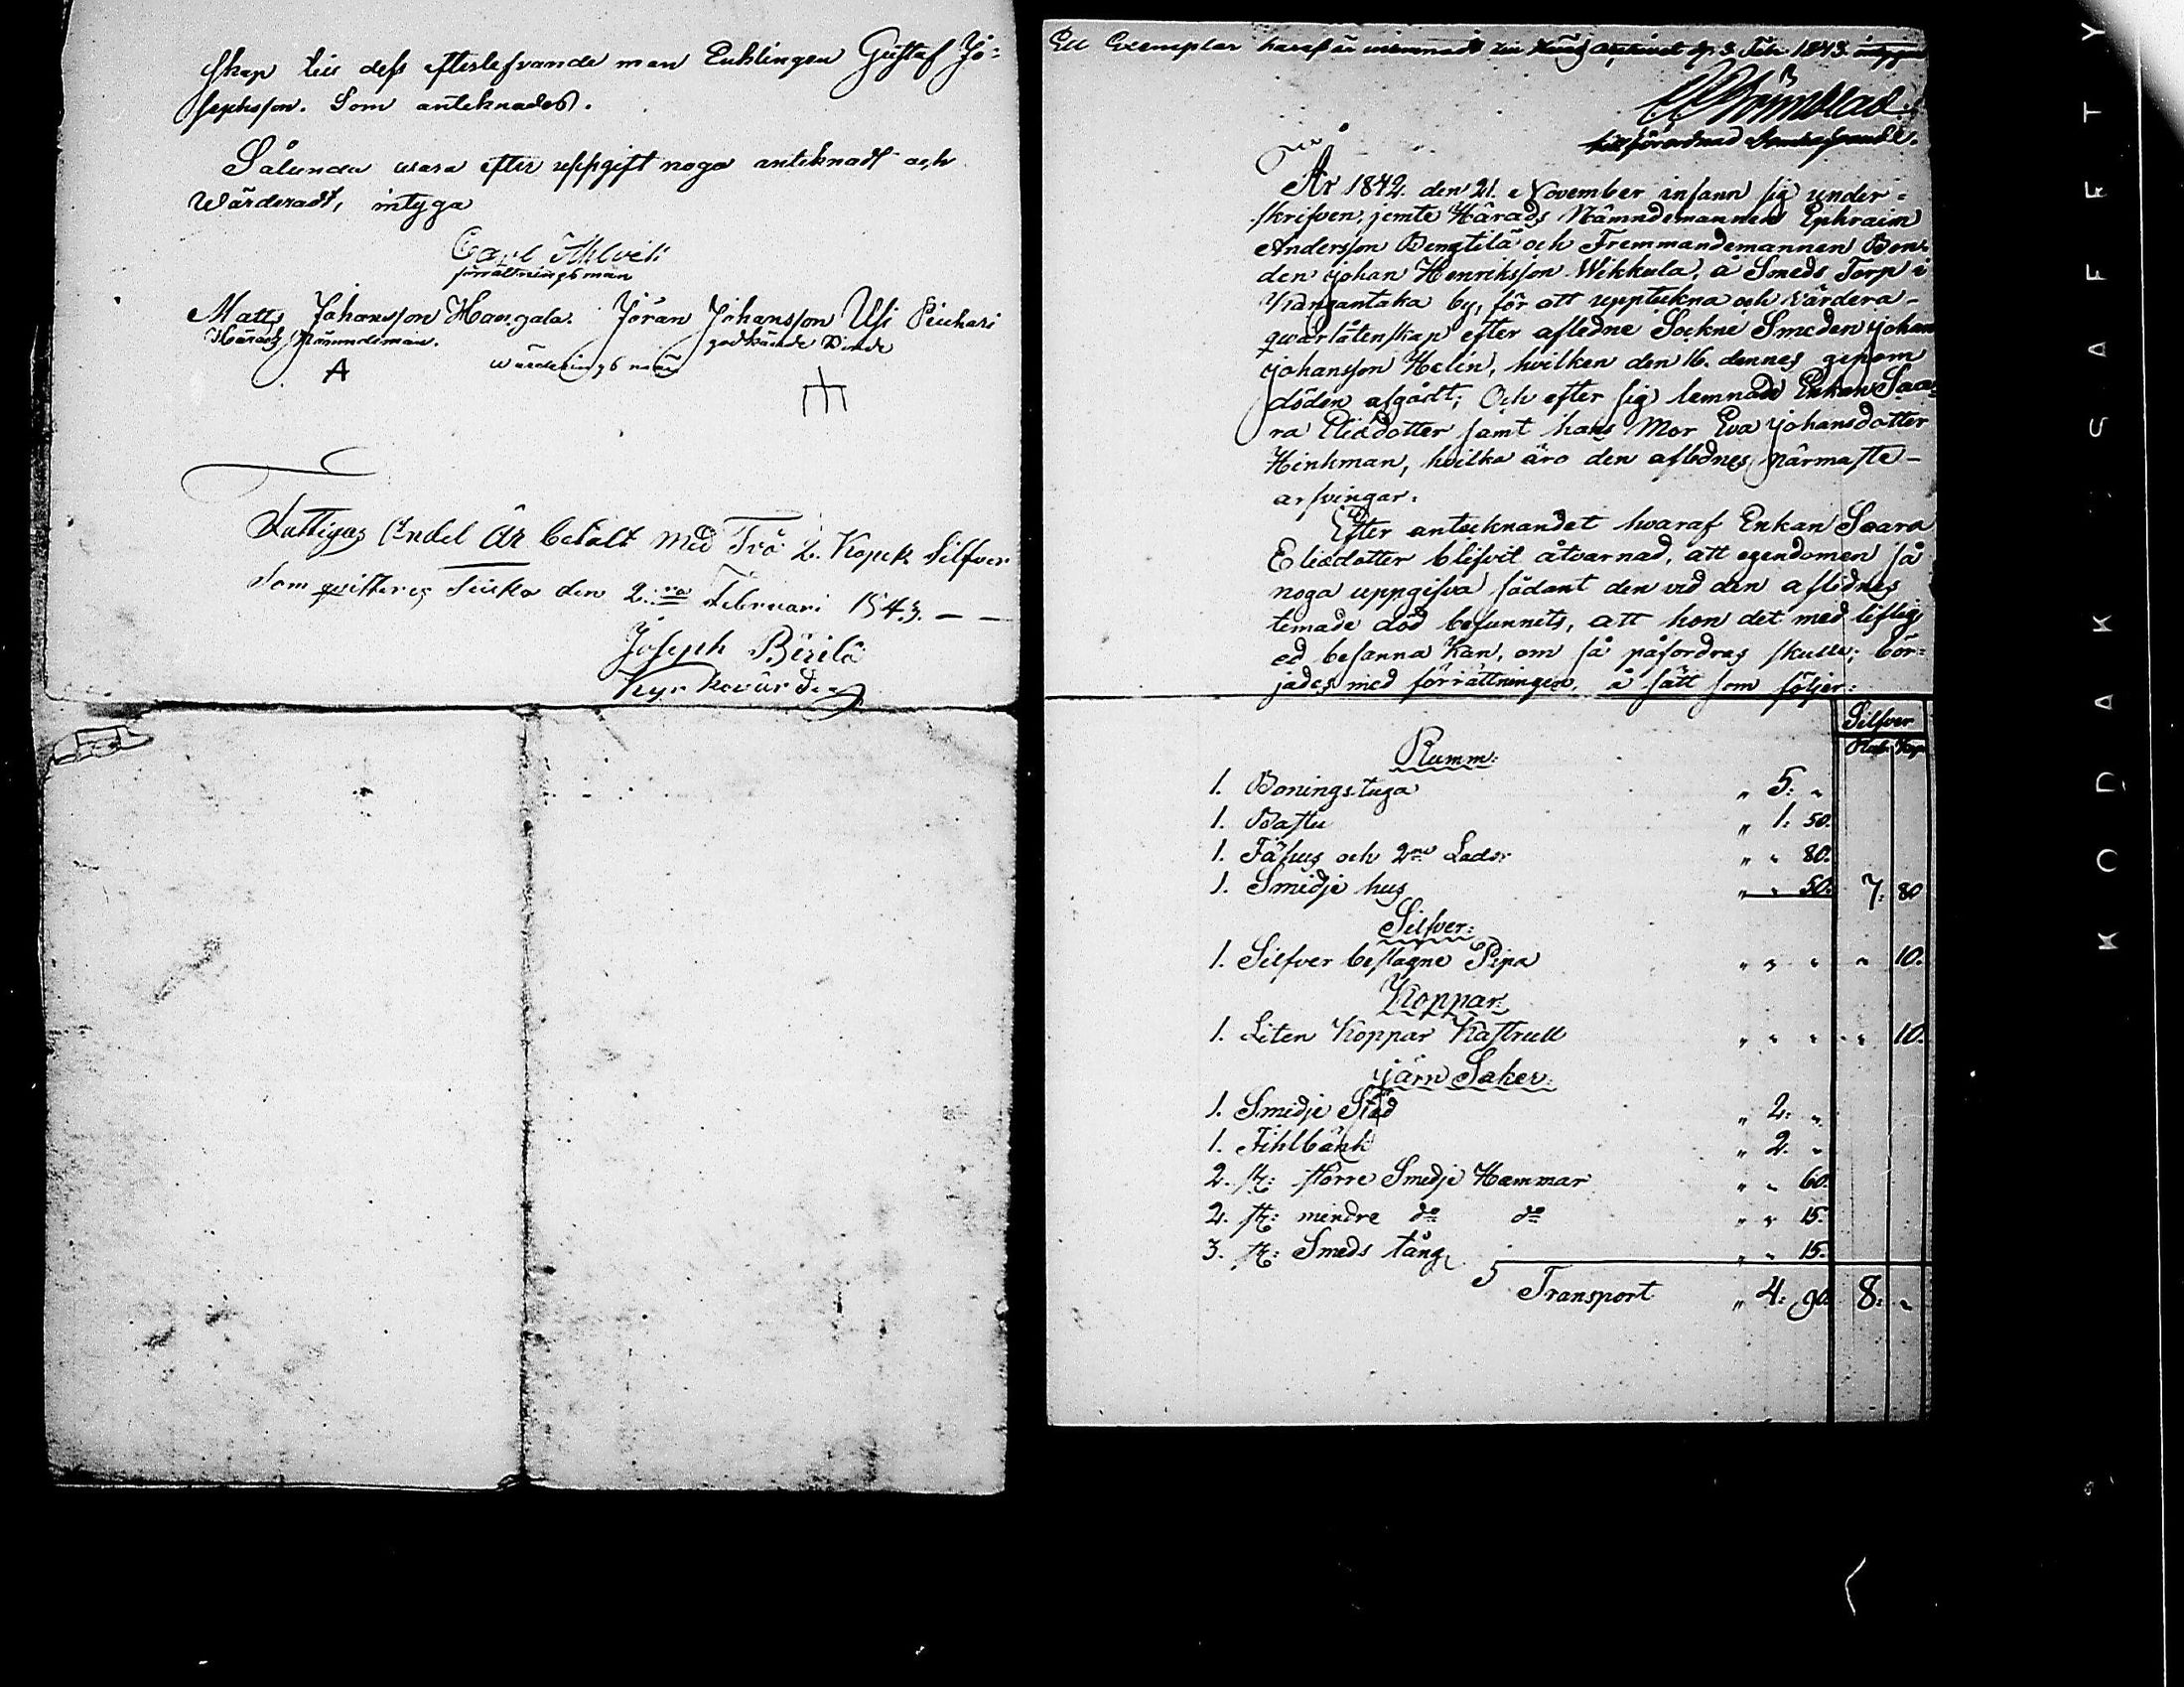 skap till dess efterlefvande man Enklingen Gustaf Jo=
sephsson. Som anteknades.
Sålunda vara efter uppgift noga anteknadt och
Wärderadt, intyga
Carl Ahlvik
förrättningsman
Matts Johansson Haugala. Jöran Johansson Usi Peichari
Härads Nämndeman. godkände Bonde
wärderings män
A
Fattigas Andel är betalt med Två 2. Kopek Silfver
Som qvitteras Tiuka den 2:ra Februari 1843. — —
Joseph Bärilä
Kyrkovärd
Ett Exemplar haraf är inlemnadt till Härads arkivet d. 3. Febr. 1843.
tillförordnad
År 1842. den 21. November infann sig under=
skrifven, jemte Härads Nämndemannen Ephraim
Andersson Bengtilä och Fremmandemannen Bon=
den Johan Henriksson Wikkula, å Smeds Torp i
Kangantaka by, för att upptekna och värdera
qvarlåtenskap efter aflidne Sockne Smeden Johan
Johansson Helin, hvilken den 16. dennes genom
döden afgått; Och efter sig lemnade Enkan Saa=
ra Eliædotter samt hans Mor Eva Johansdotter
Hinkman, hvilka äro den aflednes närmaste
arfvingar.
Efter antecknandet hwaraf Enkan Saara
Eliædotter blifvit åtvarnad, att egendomen så
noga uppgifva sådant den vid den aflidnes
timade död befunnets, att hon det med liflig
ed besanna kan, om så påfordras skulle; bör=
jades med förrättningen, å sätt som följer:
Silfver
Rub Kop
Rumm:
1. Boningstuga " 5: "
1. Bastu " 1: 50.
1. Fähus och 2ne Lador " " 80.
1. Smidje hus " " 50. 7: 80
Silfver:
1. Silfver beslagne Pipa " " " " 10.
Koppar:
1. Liten Koppar Kastrull " " " " 10.
järn Saker:
1. Smidje Städ " 2: "
1. Fihlbänk " 2. "
2. st: större Smedje Hammar " " 60.
2. st: mindre do do " " 15.
3. st: Smeds tång " " 15.
Transport " 4: 90 8: "
KODAK SAFETY